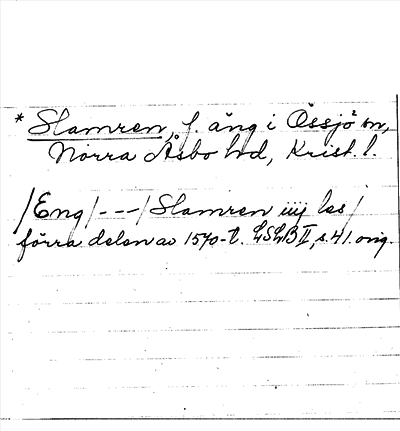 * Slamren, f. äng i Össjö sn,
Norra Åsbo hd, Krist. l.
/Eng/ - - - / Slamren iiij las /
förra delen av 1570-t. LSLB II, s. 41. orig.